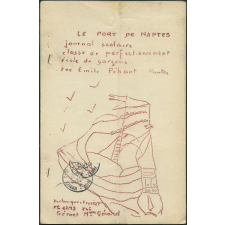 LE PORT DE NANTES
journal scolaire
classe de perfectionnement
école de garçons
rue Emile Péhant Nantes
Gérant Mme Gérard